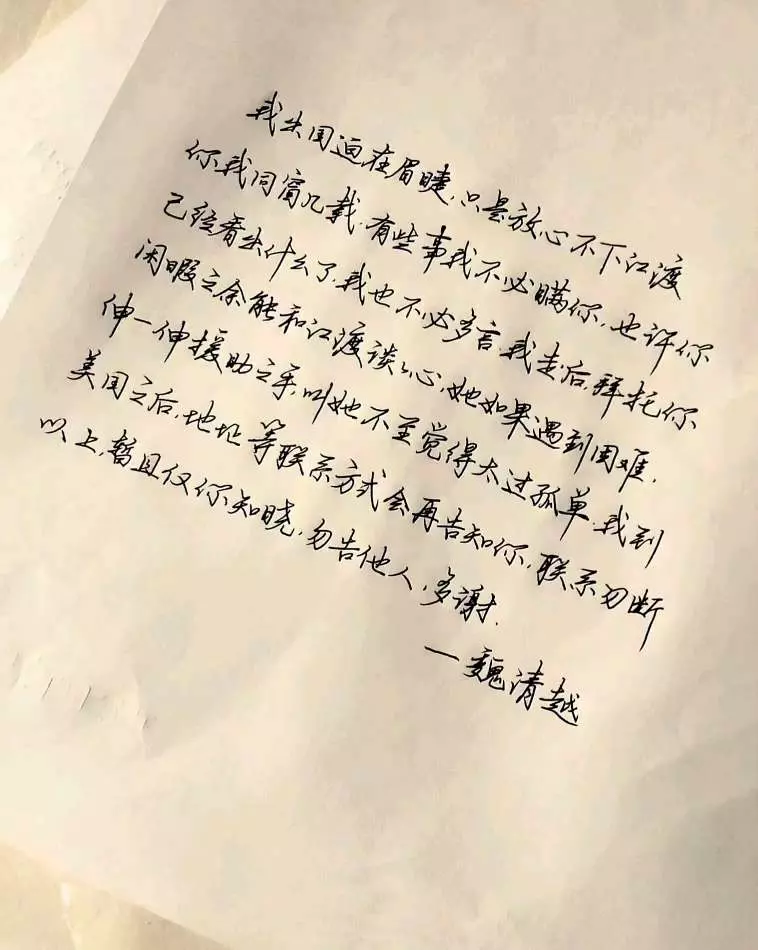 我出国迫在眉睫,只是放心不下江渡
你我同窗几载,有些事我不必瞒你,也许你
已经看出什么了,我也不必多言,我走后,拜托你
闲暇之余能和江渡谈谈心,她如果遇到困难,
伸一伸援助之手,叫她不至觉得太过孤单.我到
美国之后,地址等联系方式会再告知你,联系勿断
以上,暂且仅你知晓,勿告他人,多谢.
—魏清越